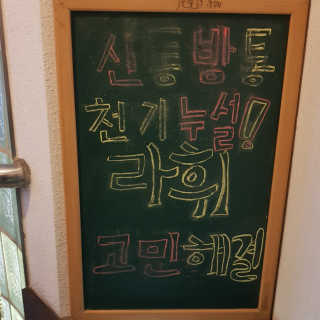 신통방통
천기누설!
라휘
고민해결